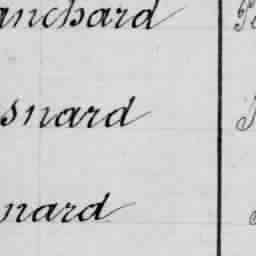 anchard
snard
nard